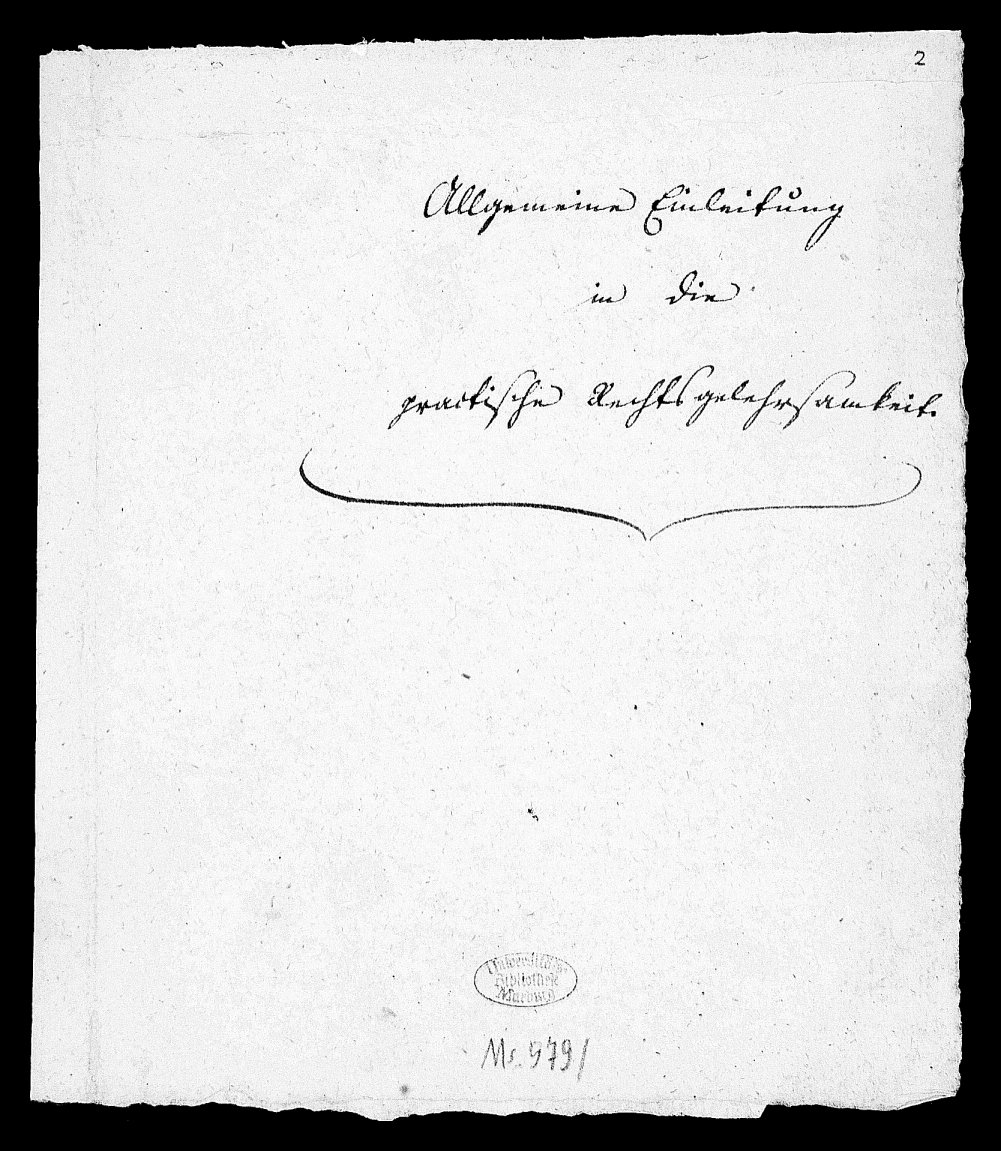 2
Allgemeine Einleitung
in die
practische Rechtsgelehrsamkeit.
Universitäts-
Bibliothek
Marburg
Ms. 979/